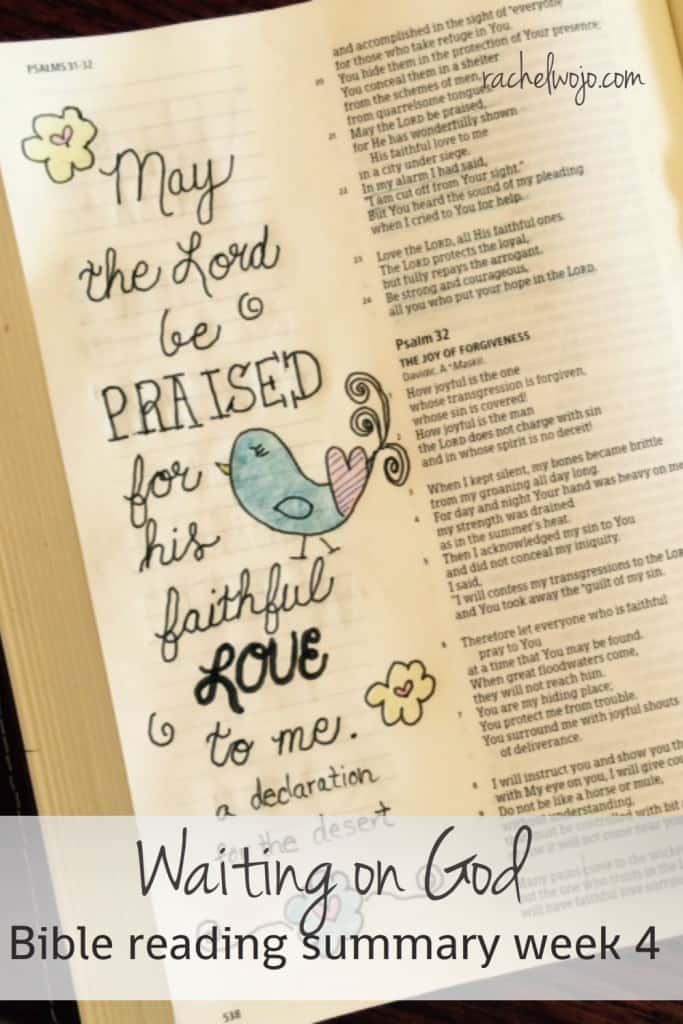 PSALMS 31-32
rachelwojo.com
May
the Lord
be
PRAISED
for
his
faithful
LOVE
to me.
a declaration
for the desert
and accomplished in the sight of "everyone
for those who take refuge in You.
20 You hide them in the protection of Your presence;
You conceal them in a shelter
from the schemes of men,
from quarrelsome tongues.
21 May the LORD be praised,
for He has wonderfully shown
His faithful love to me
in a city under siege.
22 In my alarm I had said,
"I am cut off from Your sight."
But You heard the sound of my pleading
when I cried to You for help.
23 Love the LORD, all His faithful ones.
The LORD protects the loyal,
but fully repays the arrogant.
24 Be strong and courageous,
all you who put your hope in the LORD.
Psalm 32
THE JOY OF FORGIVENESS
Davidic. A Maskil.
How joyful is the one
whose transgression is forgiven,
whose sin is covered!
2 How joyful is the man
the LORD does not charge with sin
and in whose spirit is no deceit!
3 When I kept silent, my bones became brittle
from my groaning all day long.
4 For day and night Your hand was heavy on me
my strength was drained
as in the summer's heat.
5 Then I acknowledged my sin to You
and did not conceal my iniquity.
I said,
"I will confess my transgressions to the Lo
and You took away the guilt of my sin.
6 Therefore let everyone who is faithful
pray to You
at a time that You may be found.
When great floodwaters come,
they will not reach him.
7 You are my hiding place;
You protect me from trouble.
You surround me with joyful shouts
of deliverance.
8 I will instruct you and show you th
with My eye on you, I will give cou
9 Do not be like a horse or mule,
without understanding,
with bit
Many pains come to the wicked
but the one who trusts in the L
will have faithful love surro
Waiting on God
Bible reading summary week 4
538